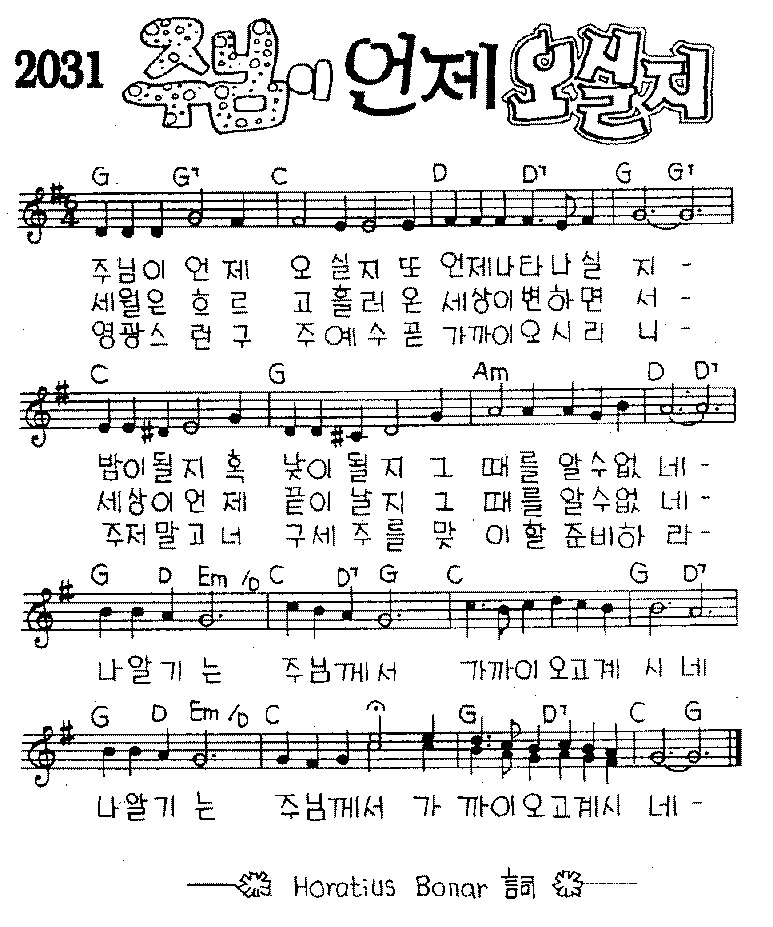 2031 주님이 언제 오실지
G G7 C D D7 G G7
6/4
주님이 언제 오 실지 또 언제나타나실 지 -
세월은 흐르 고 흘러 온 세상이변하면 서 -
영광스 런구 주예수 곧 가까이오시리 니 -
C G Am D D7
밤이될지 혹 낮이 될 지 그 때를 알수없 네 -
세상이언 제 끝이 날 지 그 때를 알수없 네 -
주저말고너 구세 주를 맞 이할 준비하 라 -
G D Em /D C D7 G C G D7
나알기 는 주님께서 가까이오고계 시 네
G D Em /D C G D7 C G
나알기 는 주님께서 가 까이오고계시 네 -
Horatius Bonar 詞